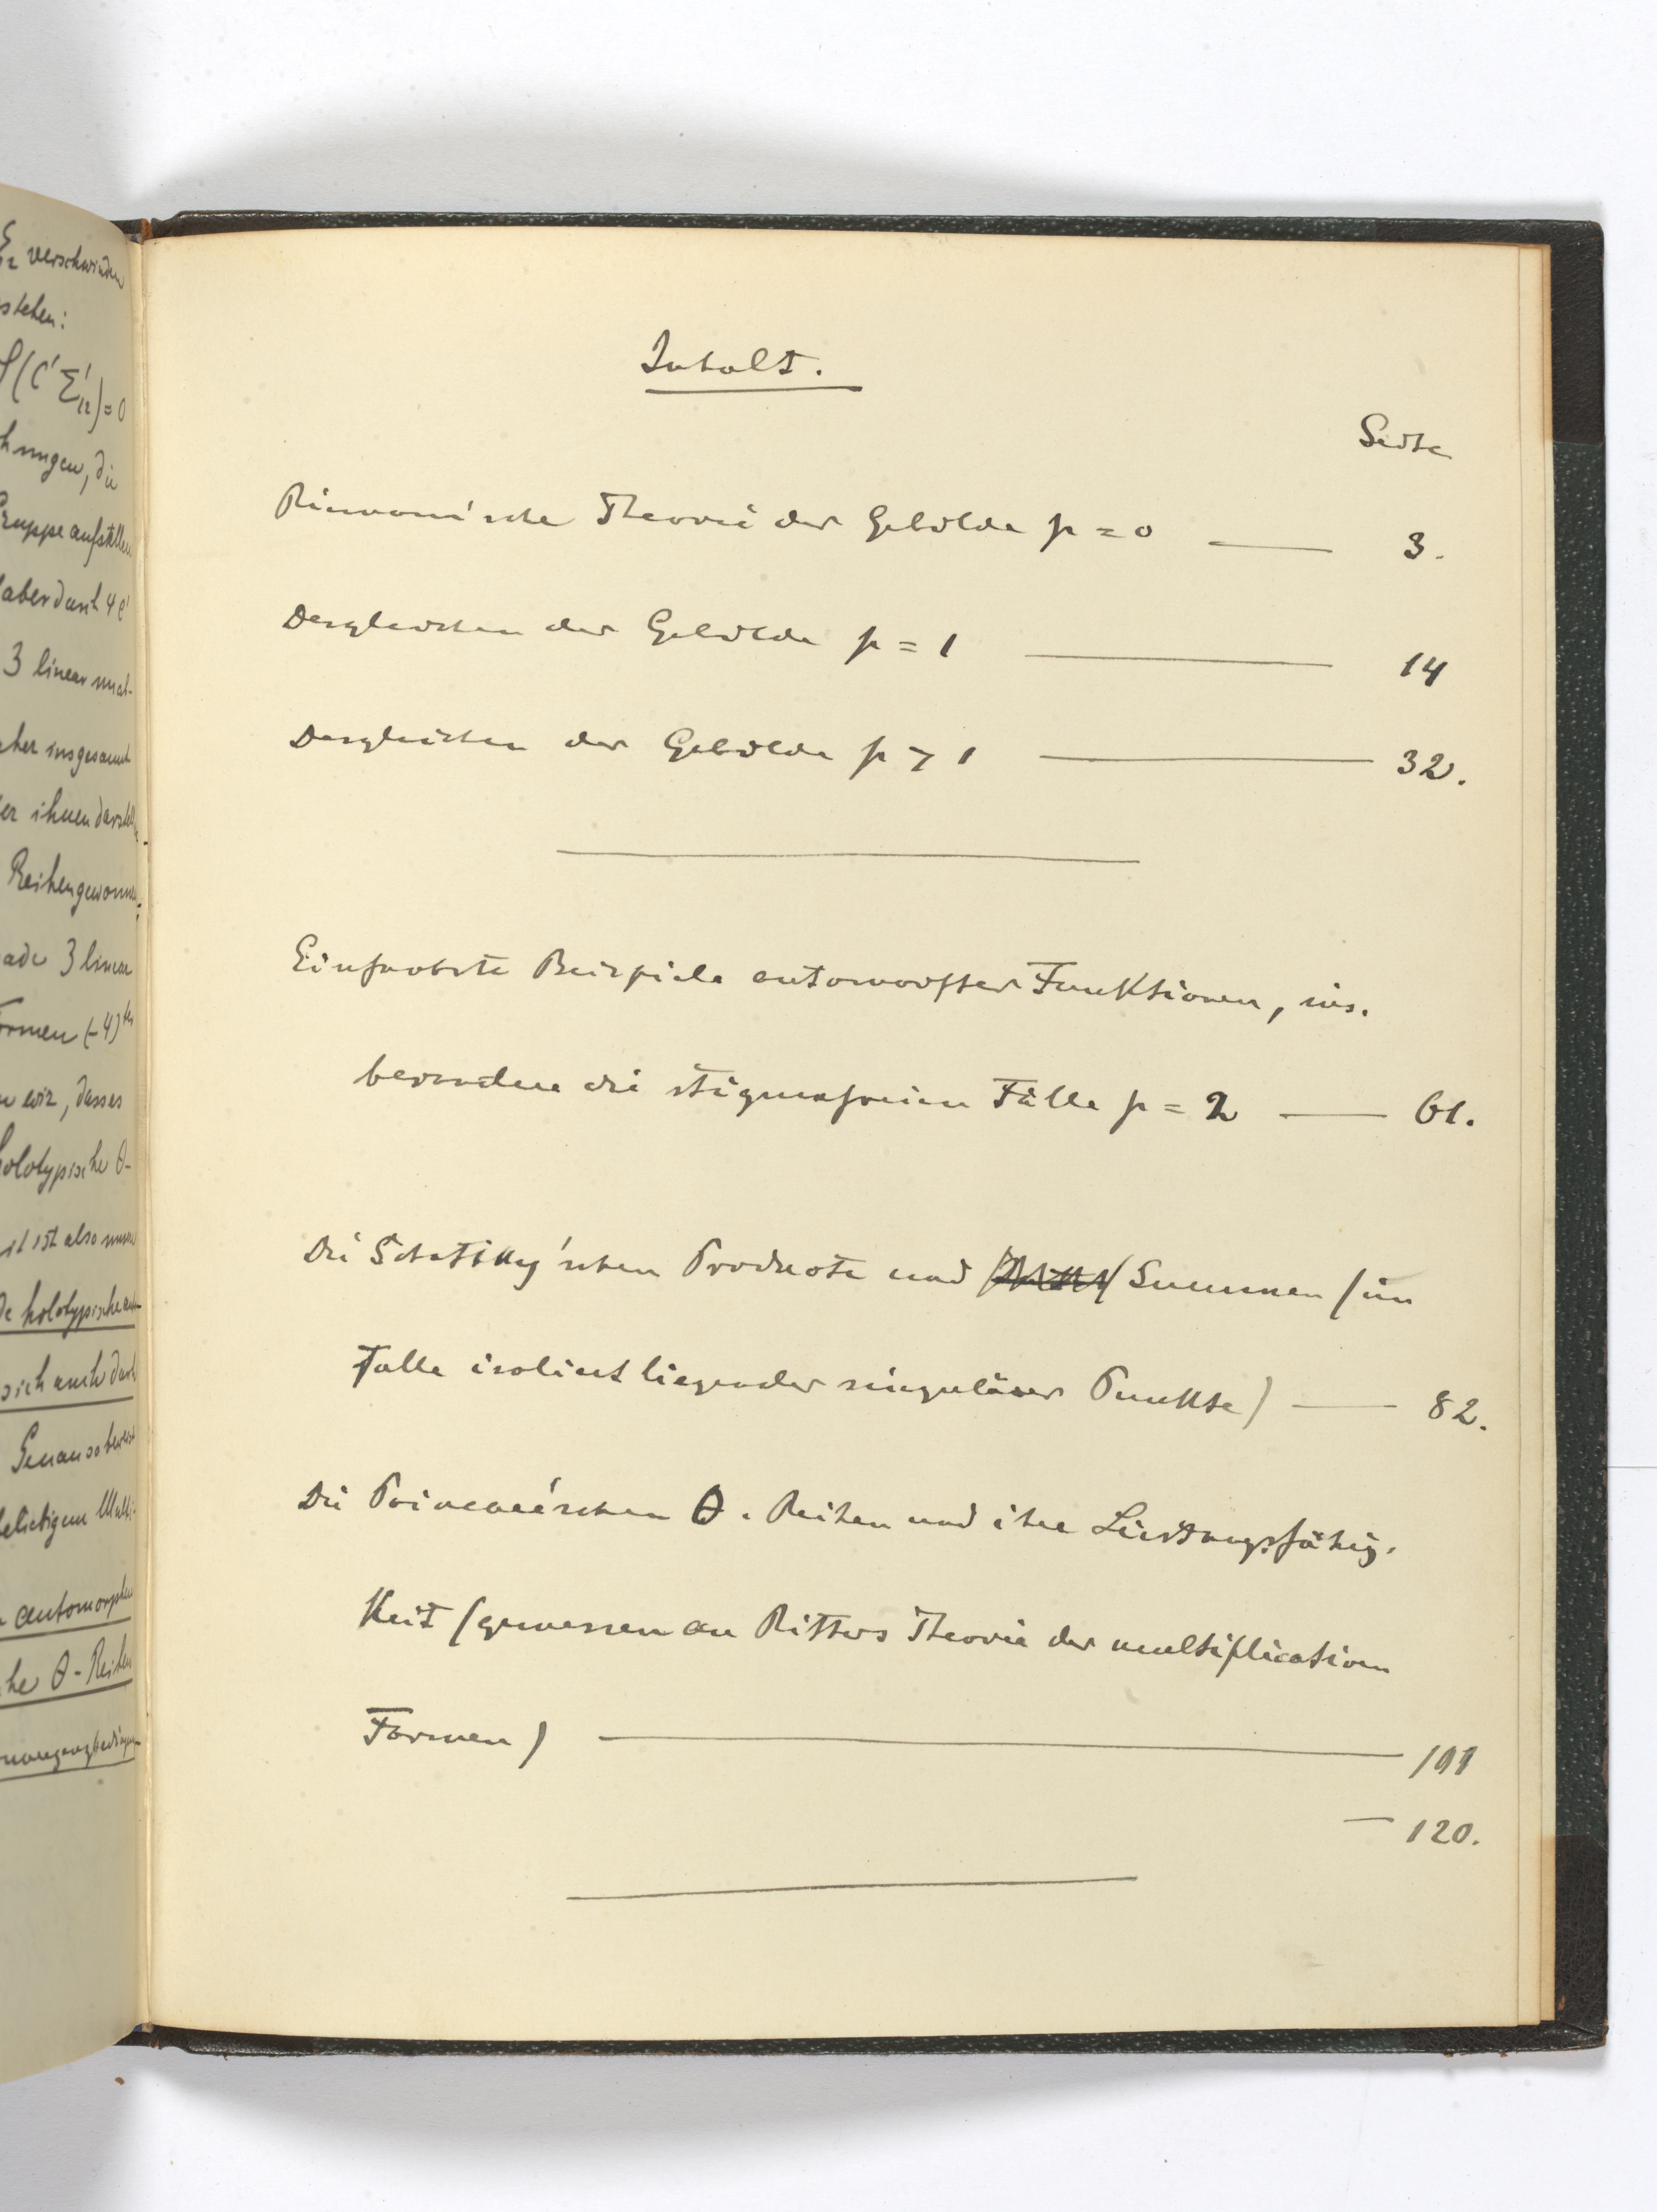 ε12 verschwinden
stehen:
(C'Σ'12)=0
hnungen, die
Gruppe aufstellen
aber durch 4
3 linear
insgesamt
er ihnen
Reihen gewonnen
ade 3 linear
Formen (-4)ter
wir, dass es
holotypische θ-
ist also
holotypische
sich auch durch
Genau so
beliebigem Multi-
automorphen
he θ-Reihen
Inhalt.
Seite
Riemann'sche Theorie der Gebilde p = 0 — 3.
Desgleichen der Gebilde p = 1 — 14
Desgleichen der Gebilde p > 1 — 32.
Einfachste Beispiele automorpher Funktionen, ins-
besondere die stigmafreien Fälle p = 2 — 61.
Die Schottky'schen Producte und Summen (im
Falle isoliert liegender singulärer Punkte) — 82.
Die Poincaré'schen θ-Reihen und ihre Leistungsfähig-
keit (gemessen an Ritters Theorie der multiplicativen
Formen) — 101
— 120.